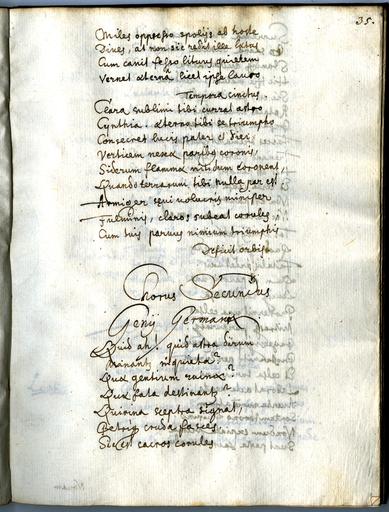 35.
Miles oppresso spolijs ab hoste
Dives, at non sic redit ille lætus
Cum canit fesso liturus quietem
Vernet æterna licet ipse lauro
Tempora cinctus.
Clara sublimi tibi currat astro
Cynthia. æterno tibi se triumpho
Consecret lucis pater et diei,
Verticem nexa paribus coronis,
Siderum flamma nitidum coronent,
Quando terrarum tibi nulla par est
Armiger
Fulminis, claros subeat
Cum tuis parvus nimium triumphis
Deficit orbis.
Chorus Secundus
Genij Germaniæ
Quid ah! quid astra dirum
Minantur inquieta?
Quæ gentium ruinæ?
Quæ fata destinant?
Quirina sceptra signat,
cruda fasces